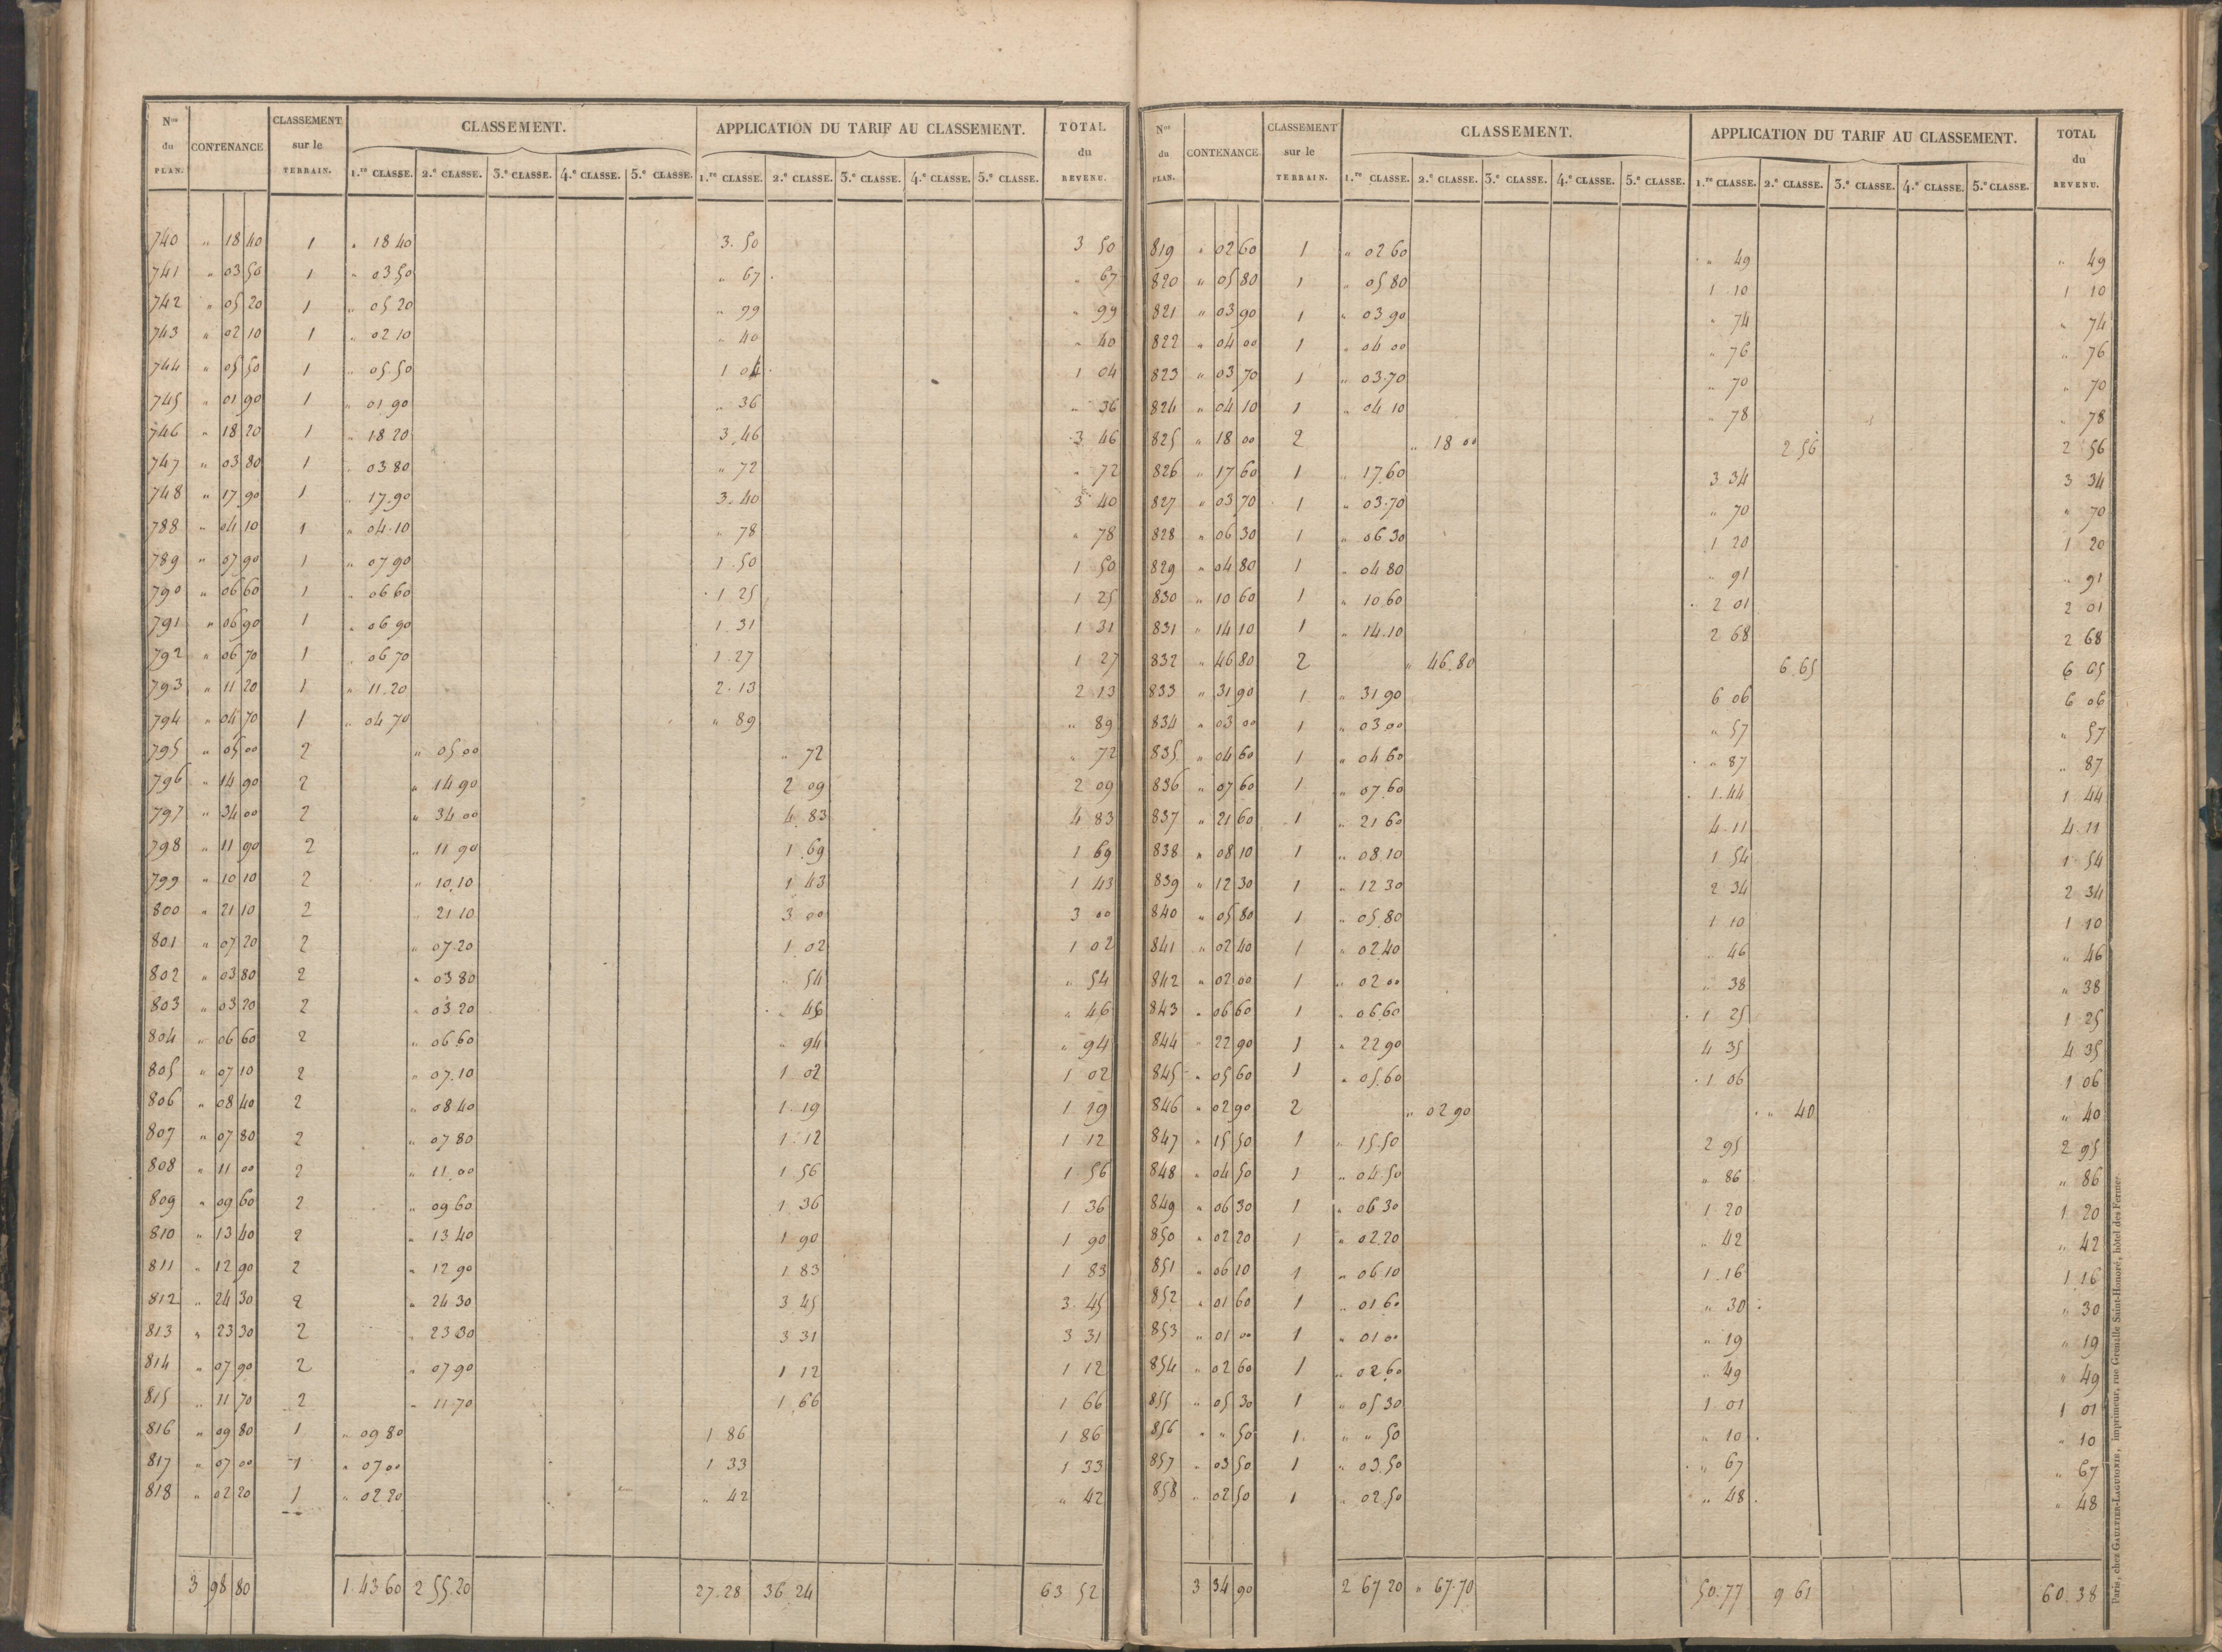 Nos du PLAN. CONTENANCE CLASSEMENT sur le TERRAIN. CLASSEMENT. APPLICATION DU TARIF AU CLASSEMENT. TOTAL du REVENU.
1.re CLASSE. 2.e CLASSE. 3.e CLASSE. 4.e CLASSE. 5.e CLASSE. 1.re CLASSE. 2.e CLASSE. 3.e CLASSE. 4.e CLASSE. 5.e CLASSE.
740 " 18 40 1 " 18 40 3. 50 3 50
741 " 03 50 1 " 03 50 " 67 " 67
742 " 05 20 1 " 05 20 " 99 " 99
743 " 02 10 1 " 02 10 " 40 " 40
744 " 05 50 1 " 05.50 1 04 1 04
745 " 01 90 1 " 01 90 " 36 " 36
746 " 18 20 1 " 18 20 3.46 3 46
747 " 03 80 1 " 03 80 " 72 " 72
748 " 17 90 1 " 17.90 3.40 3 40
788 " 04 10 1 " 04.10 " 78 " 78
789 " 07 90 1 " 07 90 1.50 1 50
790 " 06 60 1 " 06 60 1 25 1 25
791 " 06 90 1 " 06 90 1.31 1 31
792 " 06 70 1 " 06 70 1.27 1 27
793 " 11 20 1 " 11.20 2.13 2 13
794 " 04 70 1 " 04 70 " 89 " 89
795 " 05 00 2 " 05 00 " 72 " 72
796 " 14 90 2 " 14 90 2 09 2 09
797 " 34 00 2 " 34 00 4.83 4 83
798 " 11 90 2 " 11 90 1.69 1 69
799 " 10 10 2 " 10.10 1 43 1 43
800 " 21 10 2 " 21 10 3 00 3 00
801 " 07 20 2 " 07.20 1 02 1 02
802 " 03 80 2 " 03 80 " 54 " 54
803 " 03 20 2 " 03 20 " 46 " 46
804 " 06 60 2 " 06 60 " 94 " 94
805 " 07 10 2 " 07.10 1 02 1 02
806 " 08 40 2 " 08 40 1.19 1 19
807 " 07 80 2 " 07 80 1.12 1 12
808 " 11 00 2 " 11.00 1.56 1 56
809 " 09 60 2 " 09 60 1 36 1 36
810 " 13 40 2 " 13 40 1 90 1 90
811 " 12 90 2 " 12 90 1 83 1 83
812 " 24 30 2 " 24 30 3 45 3.45
813 " 23 30 2 " 23 30 3 31 3 31
814 " 07 90 2 " 07 90 1 12 1 12
815 " 11 70 2 " 11.70 1.66 1 66
816 " 09 80 1 " 09 80 1 86 1 86
817 " 07 00 1 " 07 00 1 33 1 33
818 " 02 20 1 " 02 20 " 42 " 42
3 98 80 1.43 60 2 55.20 27.28 36 24 63 52
Nos du PLAN. CONTENANCE. CLASSEMENT sur le TERRAIN. CLASSEMENT. APPLICATION DU TARIF AU CLASSEMENT. TOTAL du REVENU.
1.re CLASSE. 2.e CLASSE. 3.e CLASSE. 4.e CLASSE. 5.e CLASSE. 1.re CLASSE. 2.e CLASSE. 3.e CLASSE. 4.e CLASSE. 5.e CLASSE.
819 " 02 60 1 " 02 60 " 49 " 49
820 " 05 80 1 " 05 80 1 10 1 10
821 " 03 90 1 " 03 90 " 74 " 74
822 " 04 00 1 " 04 00 " 76 " 76
823 " 03 70 1 " 03.70 " 70 " 70
824 " 04 10 1 " 04 10 " 78 " 78
825 " 18 00 2 " 18 00 2 56 2 56
826 " 17 60 1 " 17.60 3 34 3 34
827 " 03 70 1 " 03.70 " 70 " 70
828 " 06 30 1 " 06 30 1 20 1 20
829 " 04 80 1 " 04 80 " 91 " 91
830 " 10 60 1 " 10.60 2 01 2 01
831 " 14 10 1 " 14.10 2 68 2 68
832 " 46 80 2 " 46.80 6.65 6 65
833 " 31 90 1 " 31 90 6 06 6 06
834 " 03 00 1 " 03 00 " 57 " 57
835 " 04 60 1 " 04 60 " 87 " 87
836 " 07 60 1 " 07.60 1.44 1 44
837 " 21 60 1 " 21 60 4.11 4.11
838 " 08 10 1 " 08.10 1 54 1 54
839 " 12 30 1 " 12 30 2 34 2 34
840 " 05 80 1 " 05.80 1 10 1 10
841 " 02 40 1 " 02.40 " 46 " 46
842 " 02 00 1 " 02 00 " 38 " 38
843 " 06 60 1 " 06.60 1 25 1 25
844 " 22 90 1 " 22 90 4 35 4 35
845 " 05 60 1 " 05.60 1 06 1 06
846 " 02 90 2 " 02 90 " 40 " 40
847 " 15 50 1 " 15.50 2 95 2 95
848 " 04 50 1 " 04.50 " 86 " 86
849 " 06 30 1 " 06 30 1.20 1 20
850 " 02 20 1 " 02.20 " 42 " 42
851 " 06 10 1 " 06 10 1.16 1 16
852 " 01 60 1 " 01 60 " 30 " 30
853 " 01 00 1 " 01 00 " 19 " 19
854 " 02 60 1 " 02.60 " 49 " 49
855 " 05 30 1 " 05 30 1 01 1 01
856 " " 50 1 " " 50 " 10 " 10
857 " 03 50 1 " 03.50 " 67 " 67
858 " 02 50 1 " 02.50 " 48 " 48
3 34 90 2 67 20 " 67.70 50.77 9 61 60.38
Paris, chez GAULTIER-LAGUIONIE, imprimeur, rue Grenelle Saint-Honoré, hôtel des Fermes